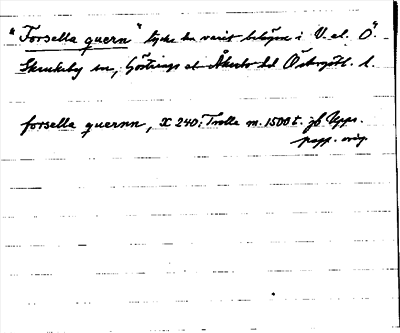 "Forsella quern" tycks ha varit belägen i V. el. Ö.
Skrukeby sn, Göstrings el. Åkerbo hd Östergötl. l.
forsella quernn, X 240: Trolle m. 1500 t. jb Upps.
papp. orig.